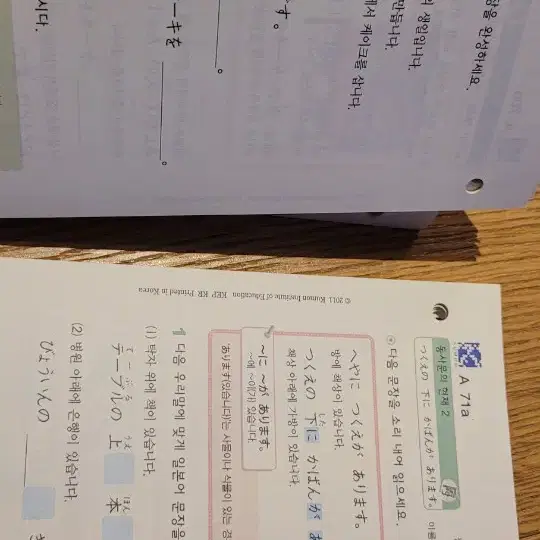 장을 완성하세요.
생일입니다.
만듭니다.
에서 케이크를 삽니다.
です。
ーキを ______。
시다.
© 2011 Kumon Institute of Education KEP KR Printed in Korea
A 71a
동사문의 현재 2
つくえの 下に かばんが あります。
다음 문장을 소리 내어 읽으세요.
へやに つくえが あります。
방에 책상이 있습니다.
つくえの 下に かばんが
した
책상 아래에 가방이 있습니다.
~に ~が あります。
~에 ~이/가 있습니다.
있습니다)는 사물이나 식물이 있는
1 다음 우리말에 맞게 일본어 문장을
(1) 탁자 위에 책이 있습니다.
てーぶる うえ ほん
テーブルの 上 本
(2) 병원 아래에 은행이 있습니다.
びょういんの